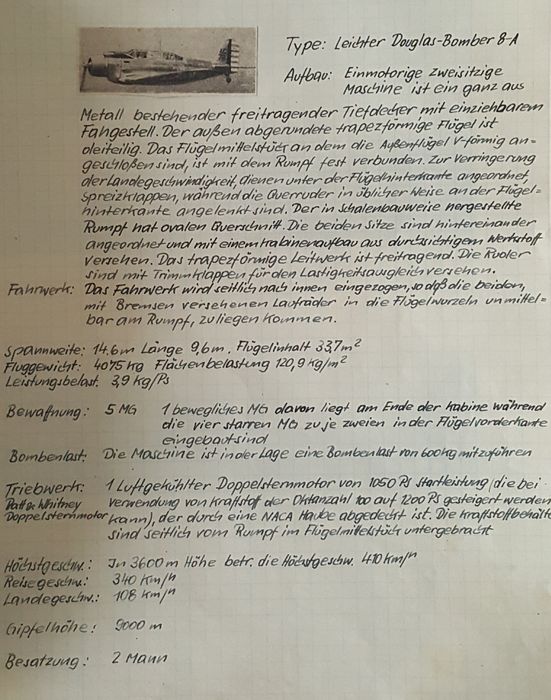 Type: Leichter Douglas-Bomber 8-A
Aufbau: Einmotorige zweisitzige
Maschine ist ein ganz aus
Metall bestehender freitragender Tiefdecker mit einziehbarem
Fahgestell. Der außen abgerundete trapezförmige Flügel ist
dreiteilig. Das Flügelmittelstück an dem die Außenflügel V-förmig an-
geschloßen sind, ist mit dem Rumpf fest verbunden. Zur Verringerung
der Landegeschwindigkeit, dienen unter der Flügelhinterkante angeordnet,
Spreizklappen, während die Querruder in üblicher Weise an der Flügel-
hinterkante angelenkt sind. Der in Schalenbauweise hergestellte
Rumpf hat ovalen Querschnitt. Die beiden Sitze sind hintereinander
angeordnet und mit einem Kabinenaufbau aus durchsichtigem Werkstoff
versehen. Das trapezförmige Leitwerk ist freitragend. Die Ruder
sind mit Trimmklappen für den Lastigkeitsausgleich versehen.
Fahrwerk: Das Fahrwerk wird seitlich nach innen eingezogen, so dß die beiden,
mit Bremsen versehenen Laufräder in die Flügelwurzeln unmittel-
bar am Rumpf, zu liegen kommen.
Spannweite: 14.6m Länge 9,6m, Flügelinhalt 33,7m²
Fluggewicht: 4075 kg Flächenbelastung 120,9 kg/m²
Leistungsbelast: 3,9 kg/Ps
Bewafnung: 5 MG 1 bewegliches MG davon liegt am Ende der Kabine während
die vier starren MG zu je zweien in der Flügelvorderkante
eingebaut sind
Bombenlast: Die Maschine ist in der Lage eine Bombenlast von 600 kg mitzuführen
Triebwerk: 1 Luftgekühlter Doppelsternmotor von 1050 Ps Startleistung (die bei
Patt & Whitney Verwendung von Kraftstoff der Oktanzahl 100 auf 1200 Ps gesteigert werden
Doppelsternmotor kann), der durch eine NACA Haube abgedeckt ist. Die Kraftstoffbehält
sind seitlich vom Rumpf im Flügelmittelstück untergebracht
Höchstgeschw.: In 3600 m Höhe betr. die Höchstgeschw. 410 km/h
Reisegeschw.: 340 km/h
Landegeschw.: 108 km/h
Gipfelhöhe: 9000 m
Besatzung: 2 Mann